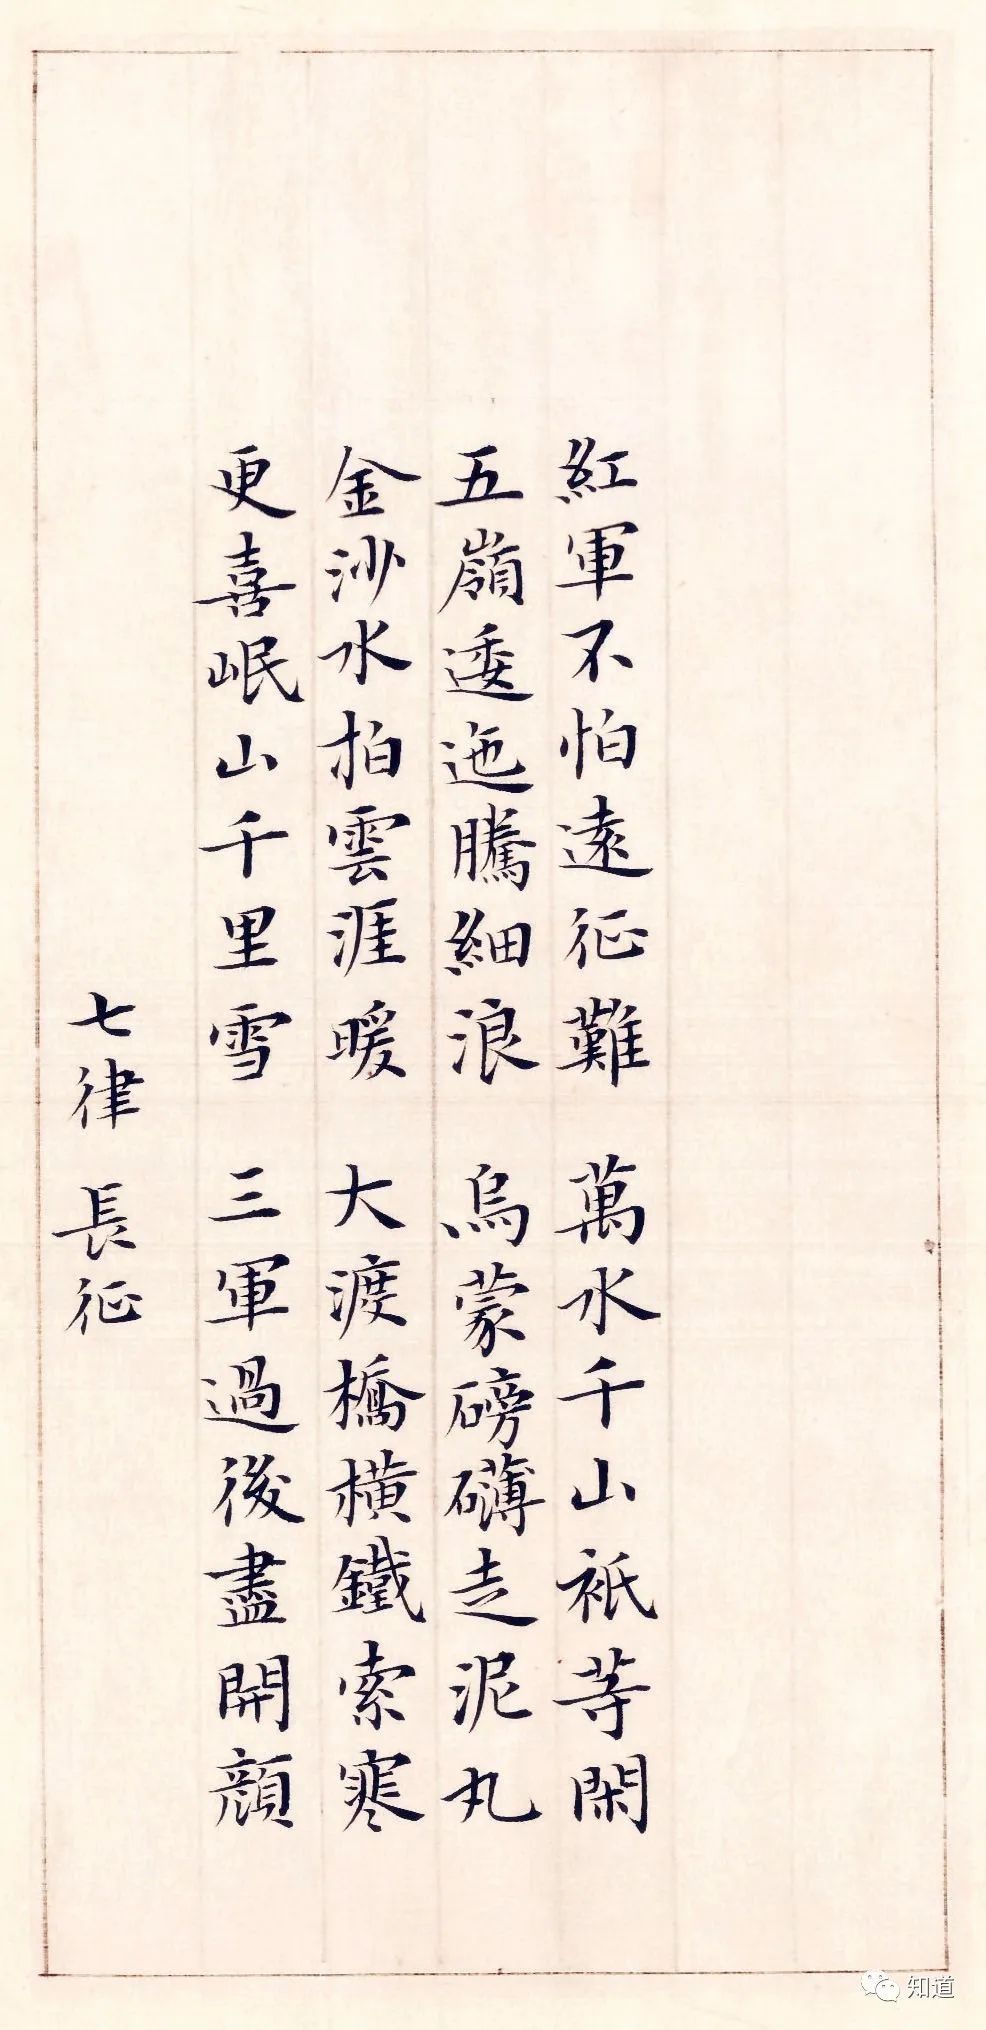 紅軍不怕遠征難 萬水千山祇等閑
五嶺逶迤騰細浪 烏蒙磅礴走泥丸
金沙水拍雲涯暖 大渡橋橫鐵索寒
更喜岷山千里雪 三軍過後盡開顏
七律 長征
知道